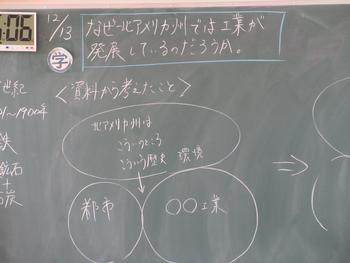 :06
12/13
なぜ北アメリカ州では工業が
発展しているのだろうか。
学
＜資料から考えたこと＞
世紀
〜1900年
鉄
鉱石
＋
石炭
北アメリカ州は
こういうところ
こういう歴史 環境
都市
○○工業